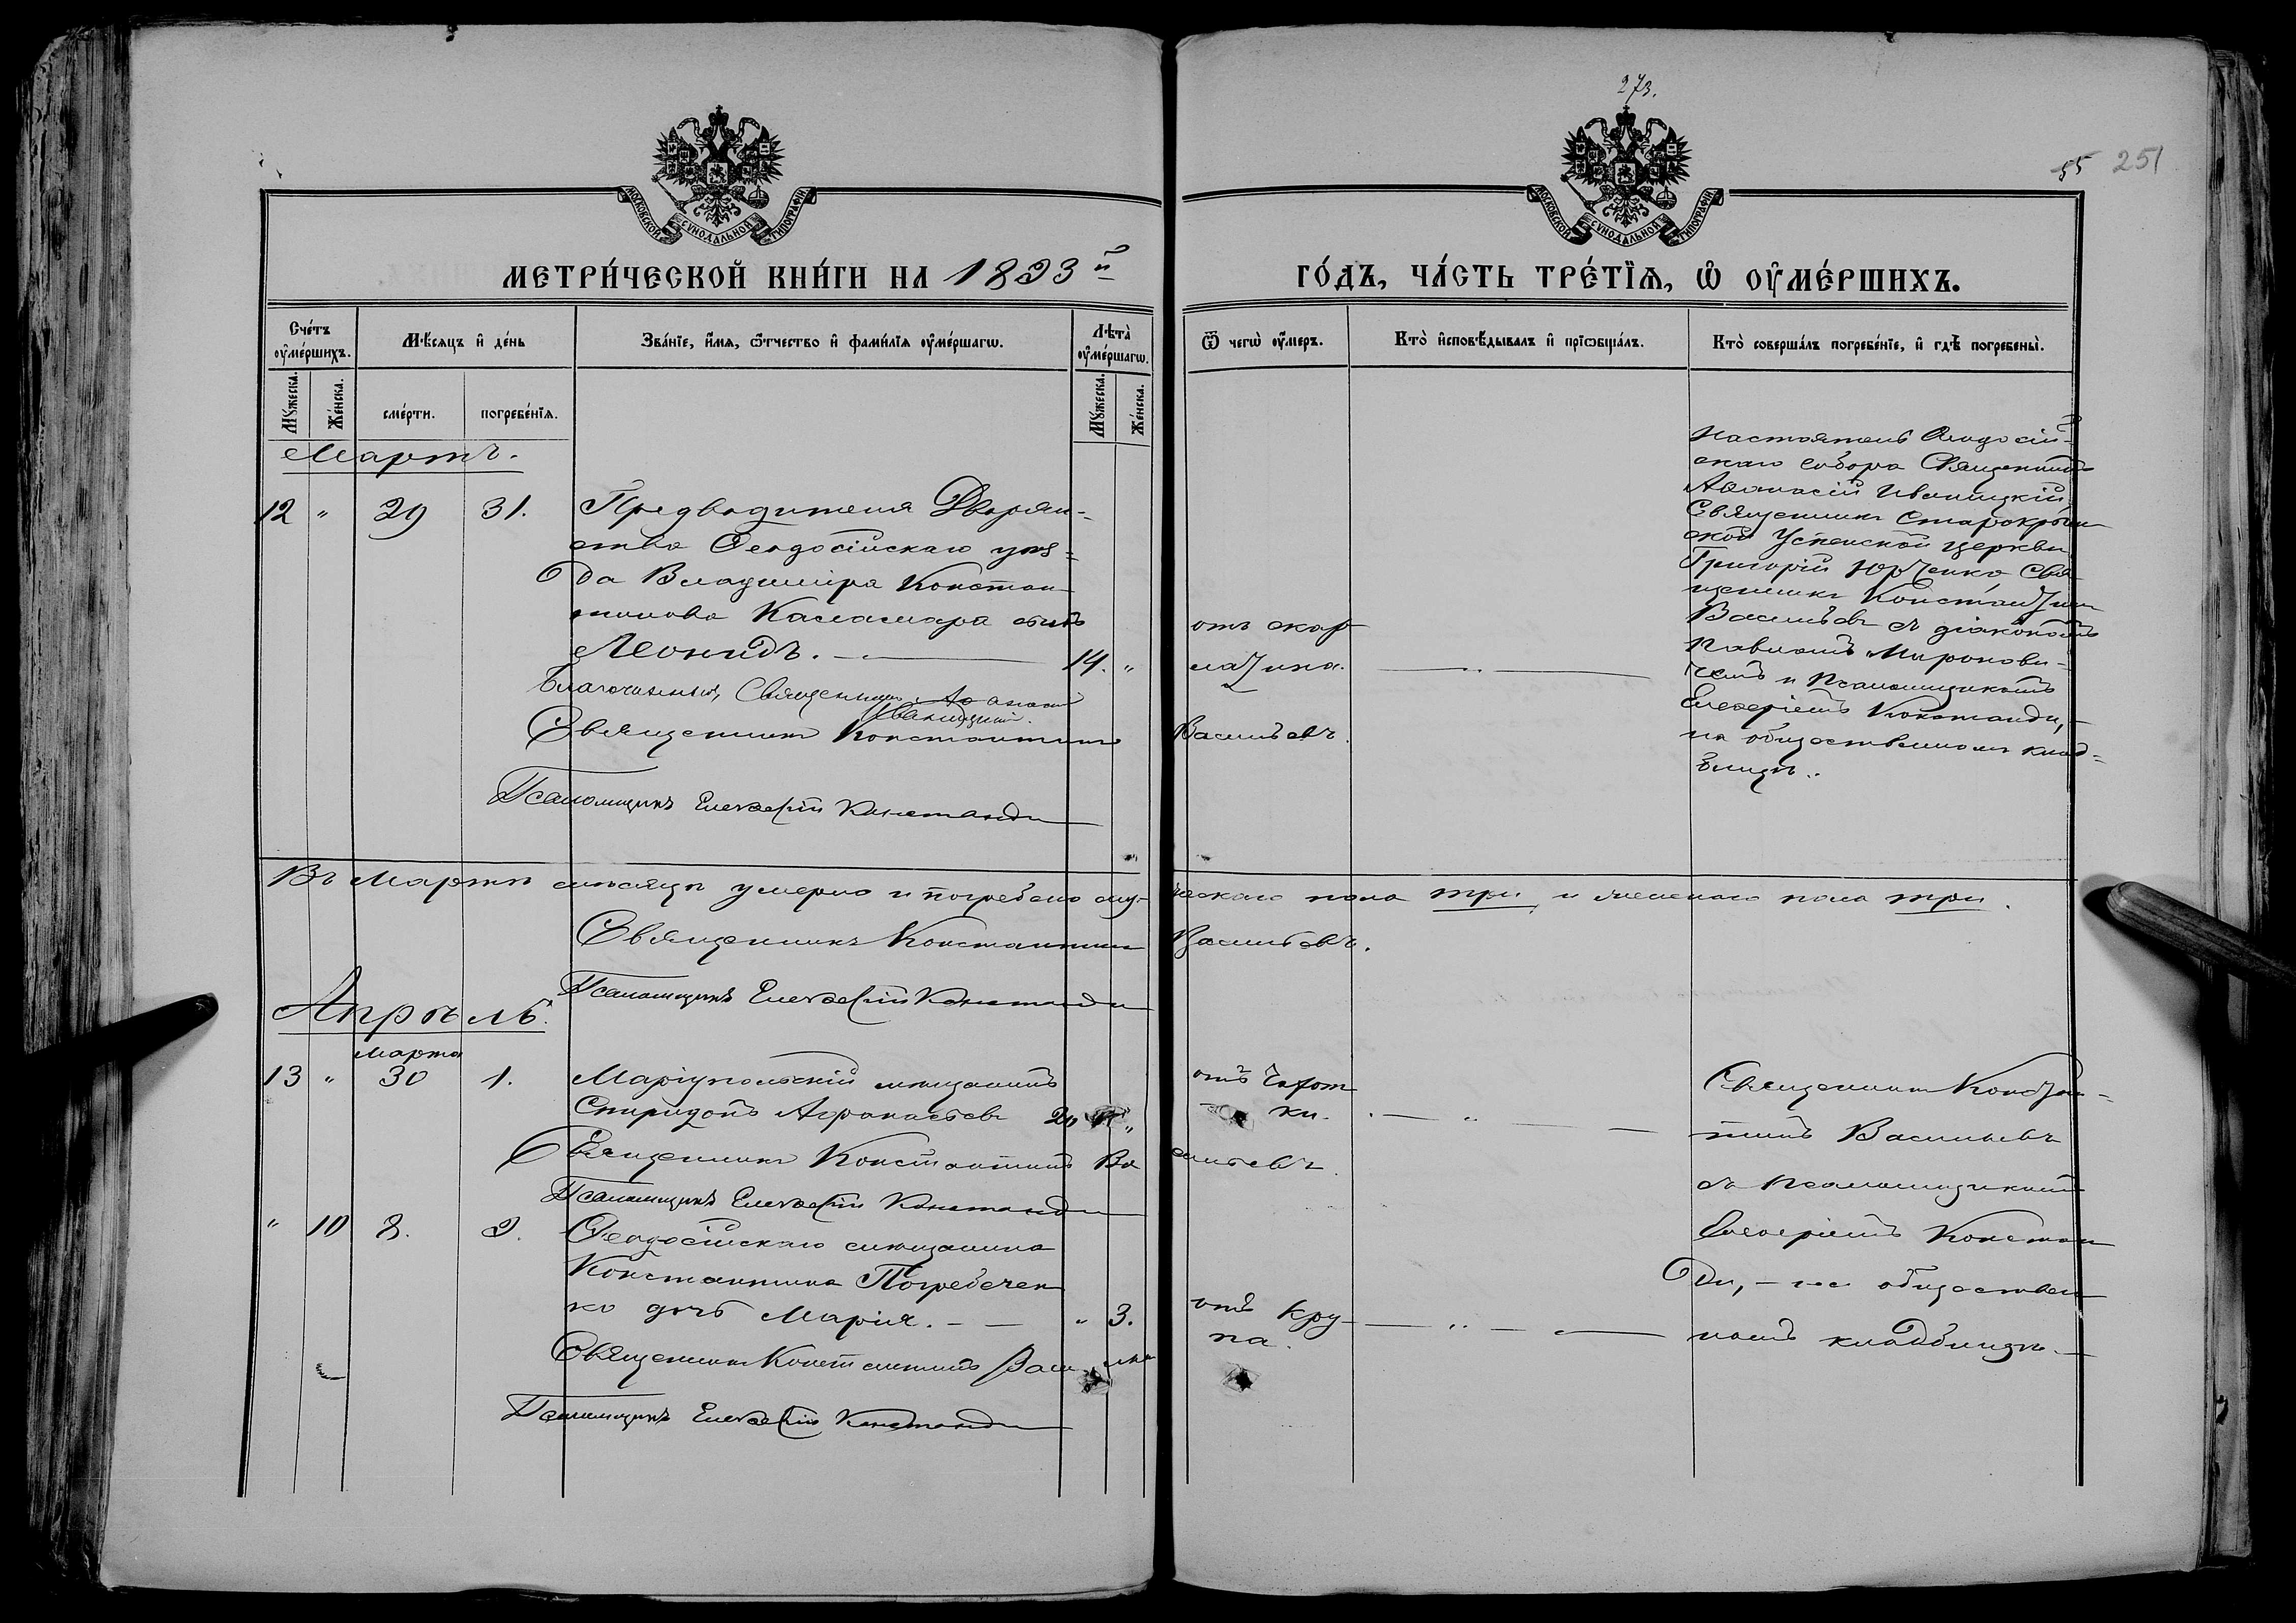 273.
55 251
МОСКОВСКОЙ СѴНОДАЛЬНОЙ ТИПОГРАФІИ
МОСКОВСКОЙ СѴНОДАЛЬНОЙ ТИПОГРАФІИ
МЕТРИ́ЧЕСКОЙ КНИ́ГИ НА 1893й
ГО́ДЪ, ЧА́СТЬ ТРЕ́ТЇѦ, Ѡ҆ ОУ҆МЕ́РШИХЪ.
Сче́тъ оу҆ме́ршихъ.
Мѣ́сяцъ и҆ де́нь
Зва́нїе, и҆́мя, ѻ҆́тчество и҆ фами́лїя оу҆ме́ршагѡ.
Лѣ́та оу҆ме́ршагѡ.
Ѿ чегѡ̀ оу҆́меръ.
Кто̀ и҆сповѣ́дывалъ и҆ прїѻбща́лъ.
Кто̀ соверша́лъ погребе́нїе, и҆ гдѣ̀ погребены̀.
Мꙋ́жеска. Же́нска.
сме́рти. погребе́нїя.
Мꙋ́жеска. Же́нска.
Мартъ.
12 " 29 31. Предводителя Дворян-
ства Ѳеодосійскаго уѣз=
да Владиміра Констан
тинова Казаснара сынъ
Леонидъ. 14. "
Благочинный, Священникъ Аѳанасій
Иваницкій.
Священникъ Константинъ Васильевъ.
Псаломщикъ Елевѳерій Констанди
отъ скар
латина.
Настоятель Ѳеодосій-
скаго собора Священникъ
Аѳанасій Иваницкій,
Священникъ Старокрым
ской Успенской церкви
Григорій Юрченко Свя-
щенникъ Константинъ
Васильевъ съ діакономъ
Павломъ Миронови-
чемъ и Псаломщикомъ
Елевѳеріемъ Констанди,
на общественномъ клад=
бищѣ.
Въ Мартѣ мѣсяцѣ умерло и погребено муж-ческаго пола три, и женскаго пола три.
Священникъ Константинъ Васильевъ.
Псаломщикъ Елевѳерій Констанди
Апрѣль.
марта
13 " 30 1. Маріупольскій мѣщанинъ
Спиридонъ Аѳанасьевъ 20 "
Священникъ Константинъ Васильевъ.
Псаломщикъ Елевѳерій Констанди
отъ чахот
ки.
Священникъ Констан-
тинъ Васильевъ
съ Псаломщикомъ
Елевѳеріемъ Констан
ди, - на обществен
номъ кладбищѣ.
" 10 8. 9. Ѳеодосійскаго мѣщанина
Константина Погребечен
ко дочь Марія. " 3.
Священникъ Константинъ
Псаломщикъ Елевѳерій Констанди
отъ кру-
па.